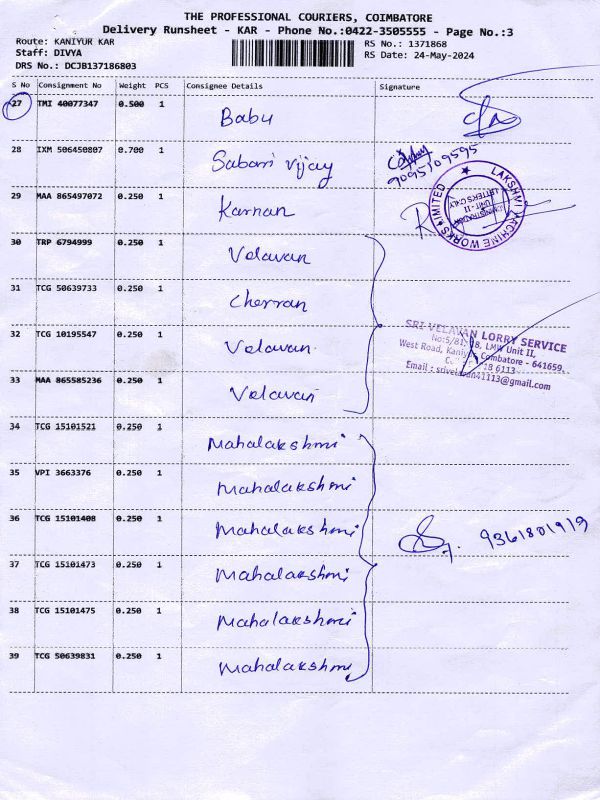 THE PROFESSIONAL COURIERS, COIMBATORE
Delivery Runsheet - KAR - Phone No.:0422-3505555 - Page No.:3
Route: KANIYUR KAR
RS No.: 1371868
Staff: DIVYA
RS Date: 24-May-2024
DRS No.: DCJB137186803
S No Consignment No Weight PCS Consignee Details Signature
27 TMI 40077347 0.500 1 Babu
28 IXM 506450807 0.700 1 Sabari Vijay
9095109595
29 MAA 865497072 0.250 1 Karnan
LAKSHMI MACHINE WORKS LIMITED
UNIT - II
LETTERS ONLY
30 TRP 6794999 0.250 1 Velavan
31 TCG 50639733 0.250 1 Cherran
32 TCG 10195547 0.250 1 Velavan
SRI VELAVAN LORRY SERVICE
LMW Unit II,
West Road, Combatore - 641659.
6113
Email : srivelavan41113@gmail.com
33 MAA 865585236 0.250 1 Velavan
34 TCG 15101521 0.250 1 Mahalakshmi
35 VPI 3663376 0.250 1 Mahalakshmi
36 TCG 15101408 0.250 1 Mahalakshmi
9361801919
37 TCG 15101473 0.250 1 Mahalakshmi
38 TCG 15101475 0.250 1 Mahalakshmi
39 TCG 50639831 0.250 1 Mahalakshmi